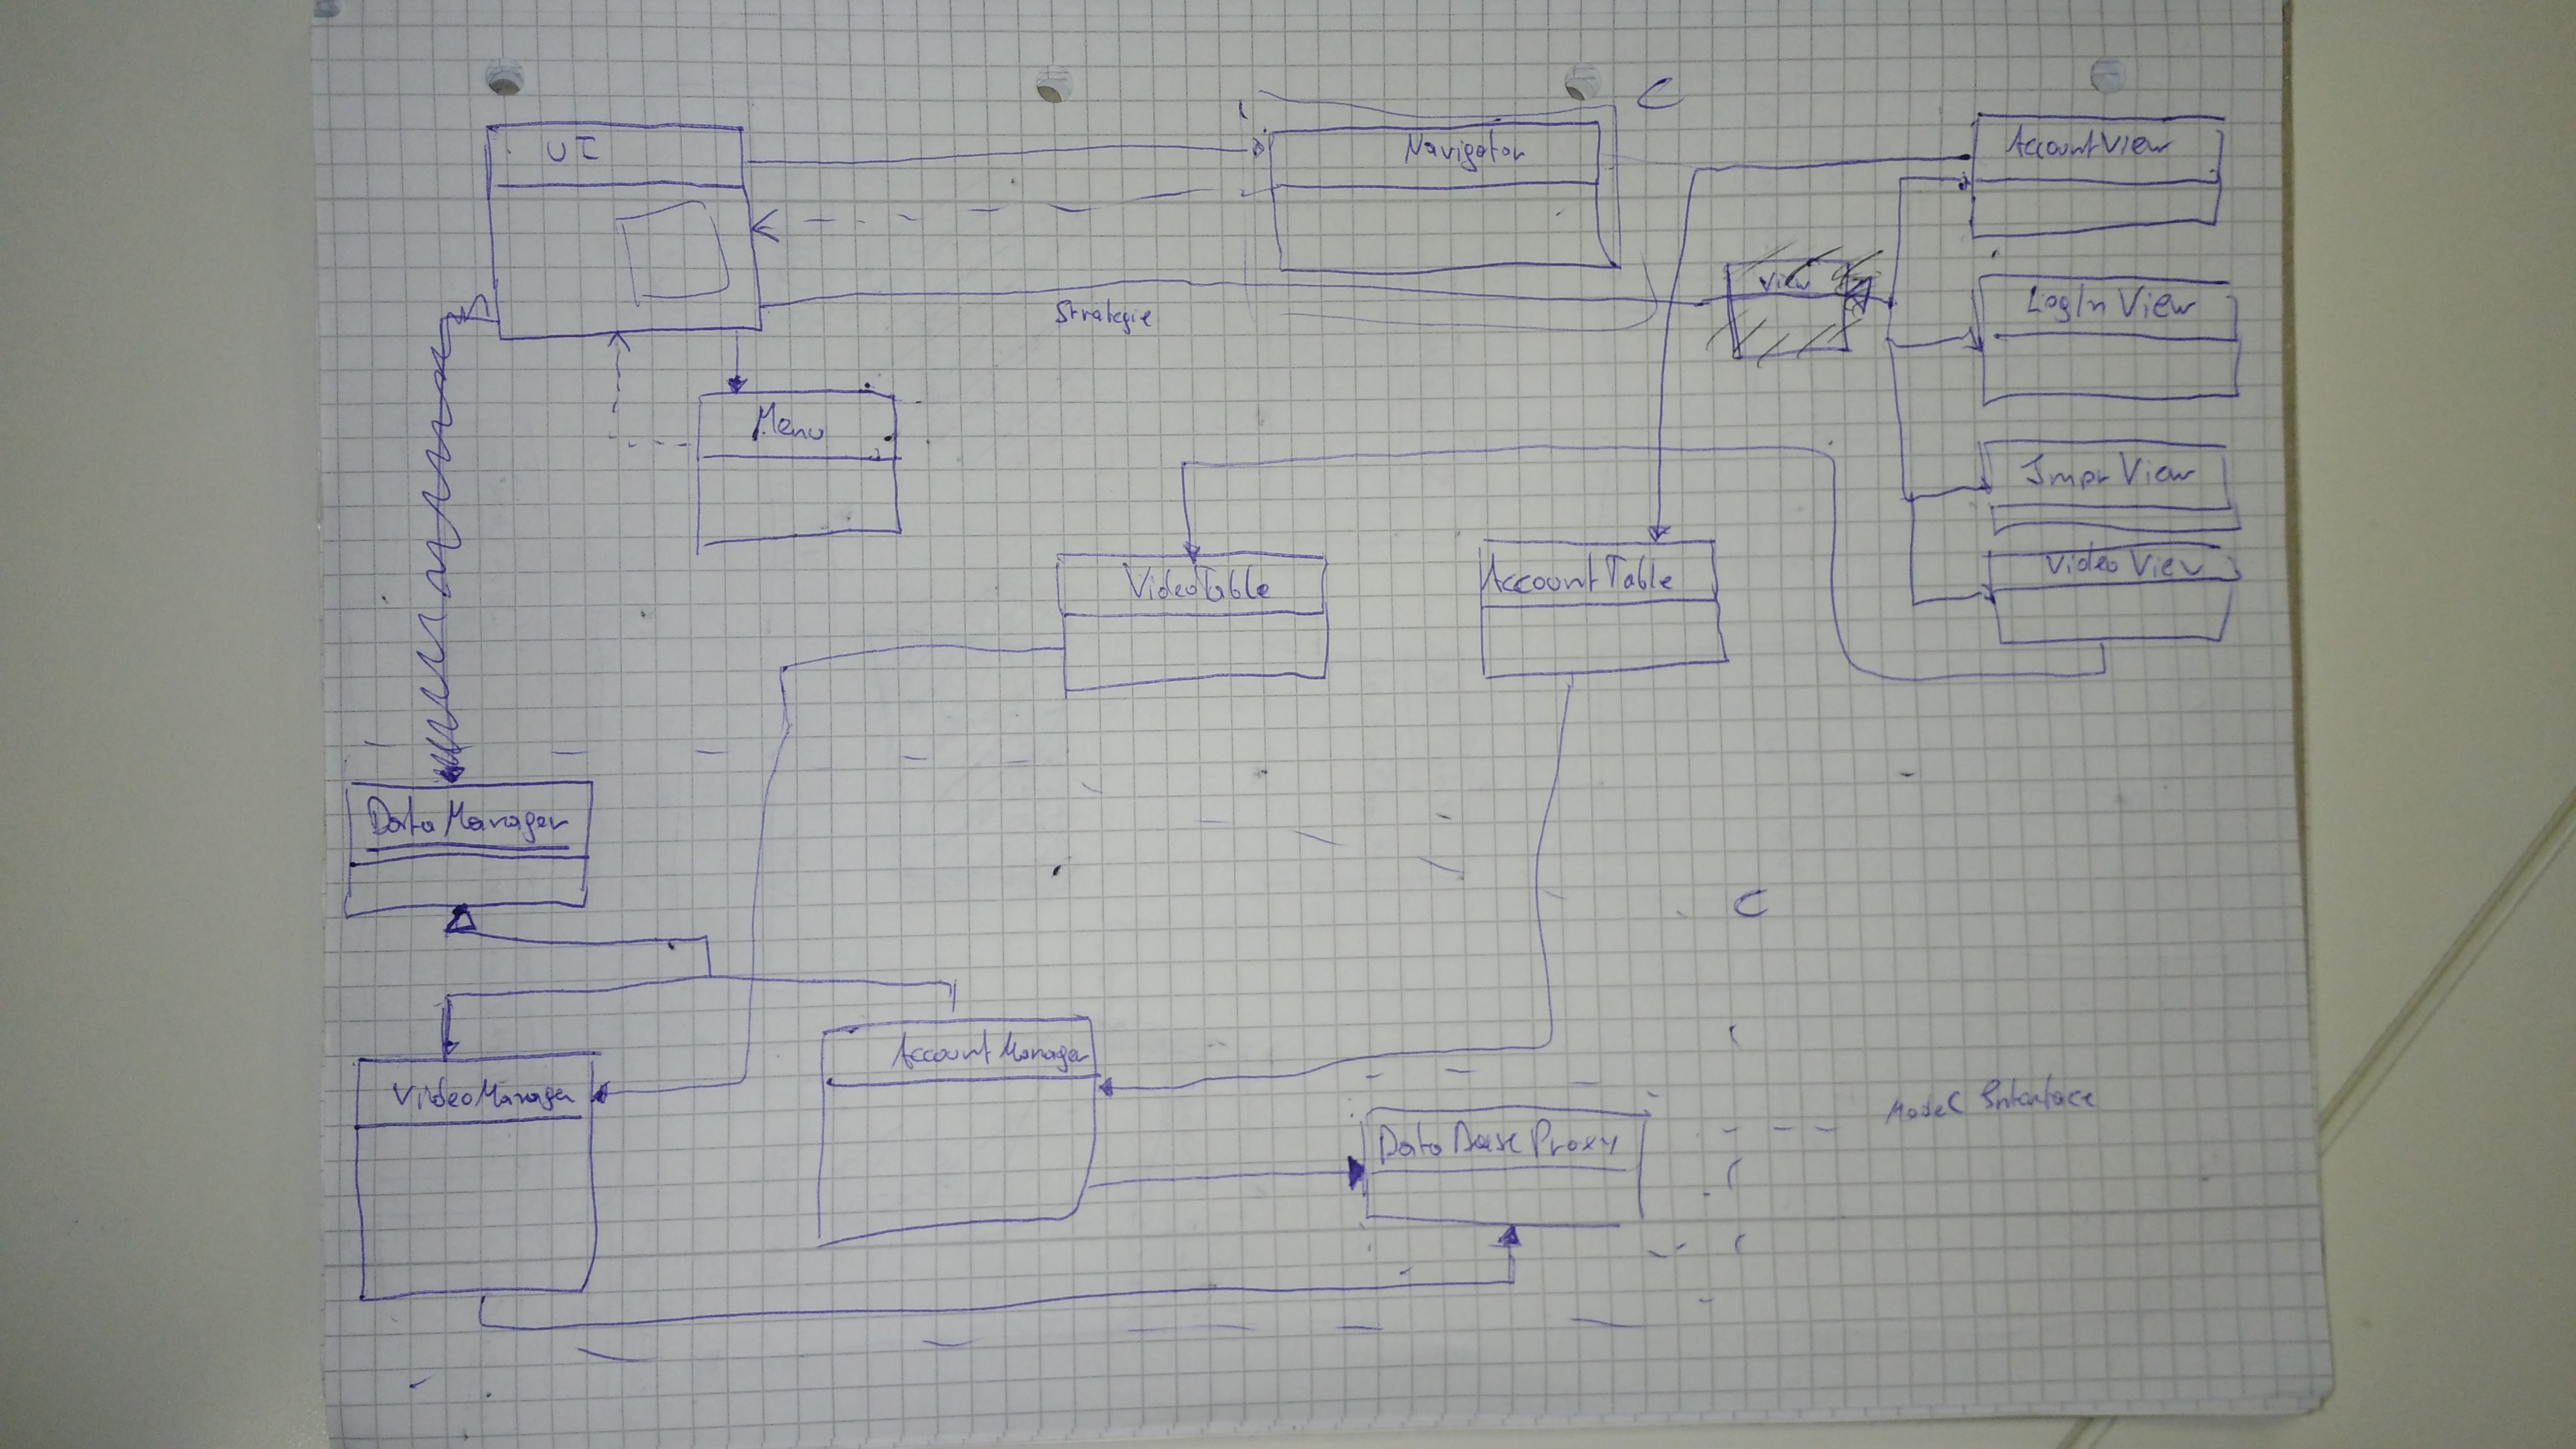 C
UI
Navigator
AccountView
View
LogIn View
Strategie
Menu
Impr View
Video View
VideoTable
AccountTable
Data Manager
C
Account Manager
VideoManager
Model Interface
Data Base Proxy